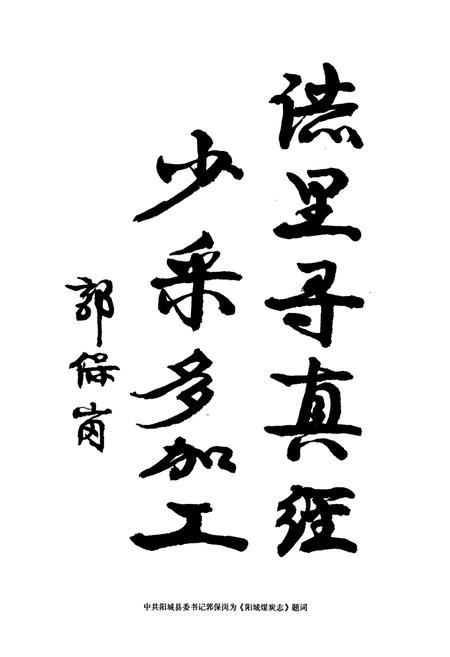 誌里寻真经
少采多加工
郭保岗
中共阳城县委书记郭保岗为《阳城煤炭志》题词